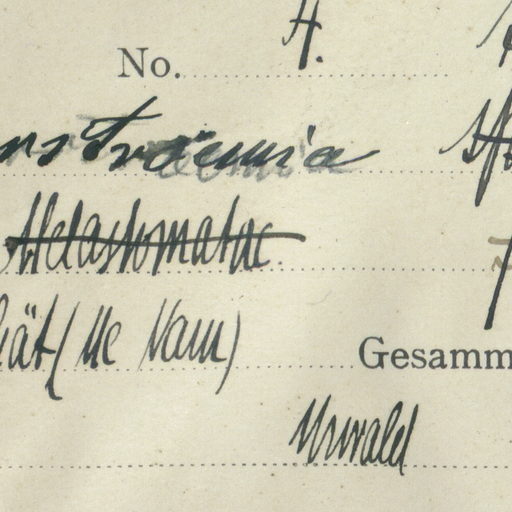 No. H.
nstroemia
Melastomatac.
ät (Me Nam)
Gesamm
Urwald